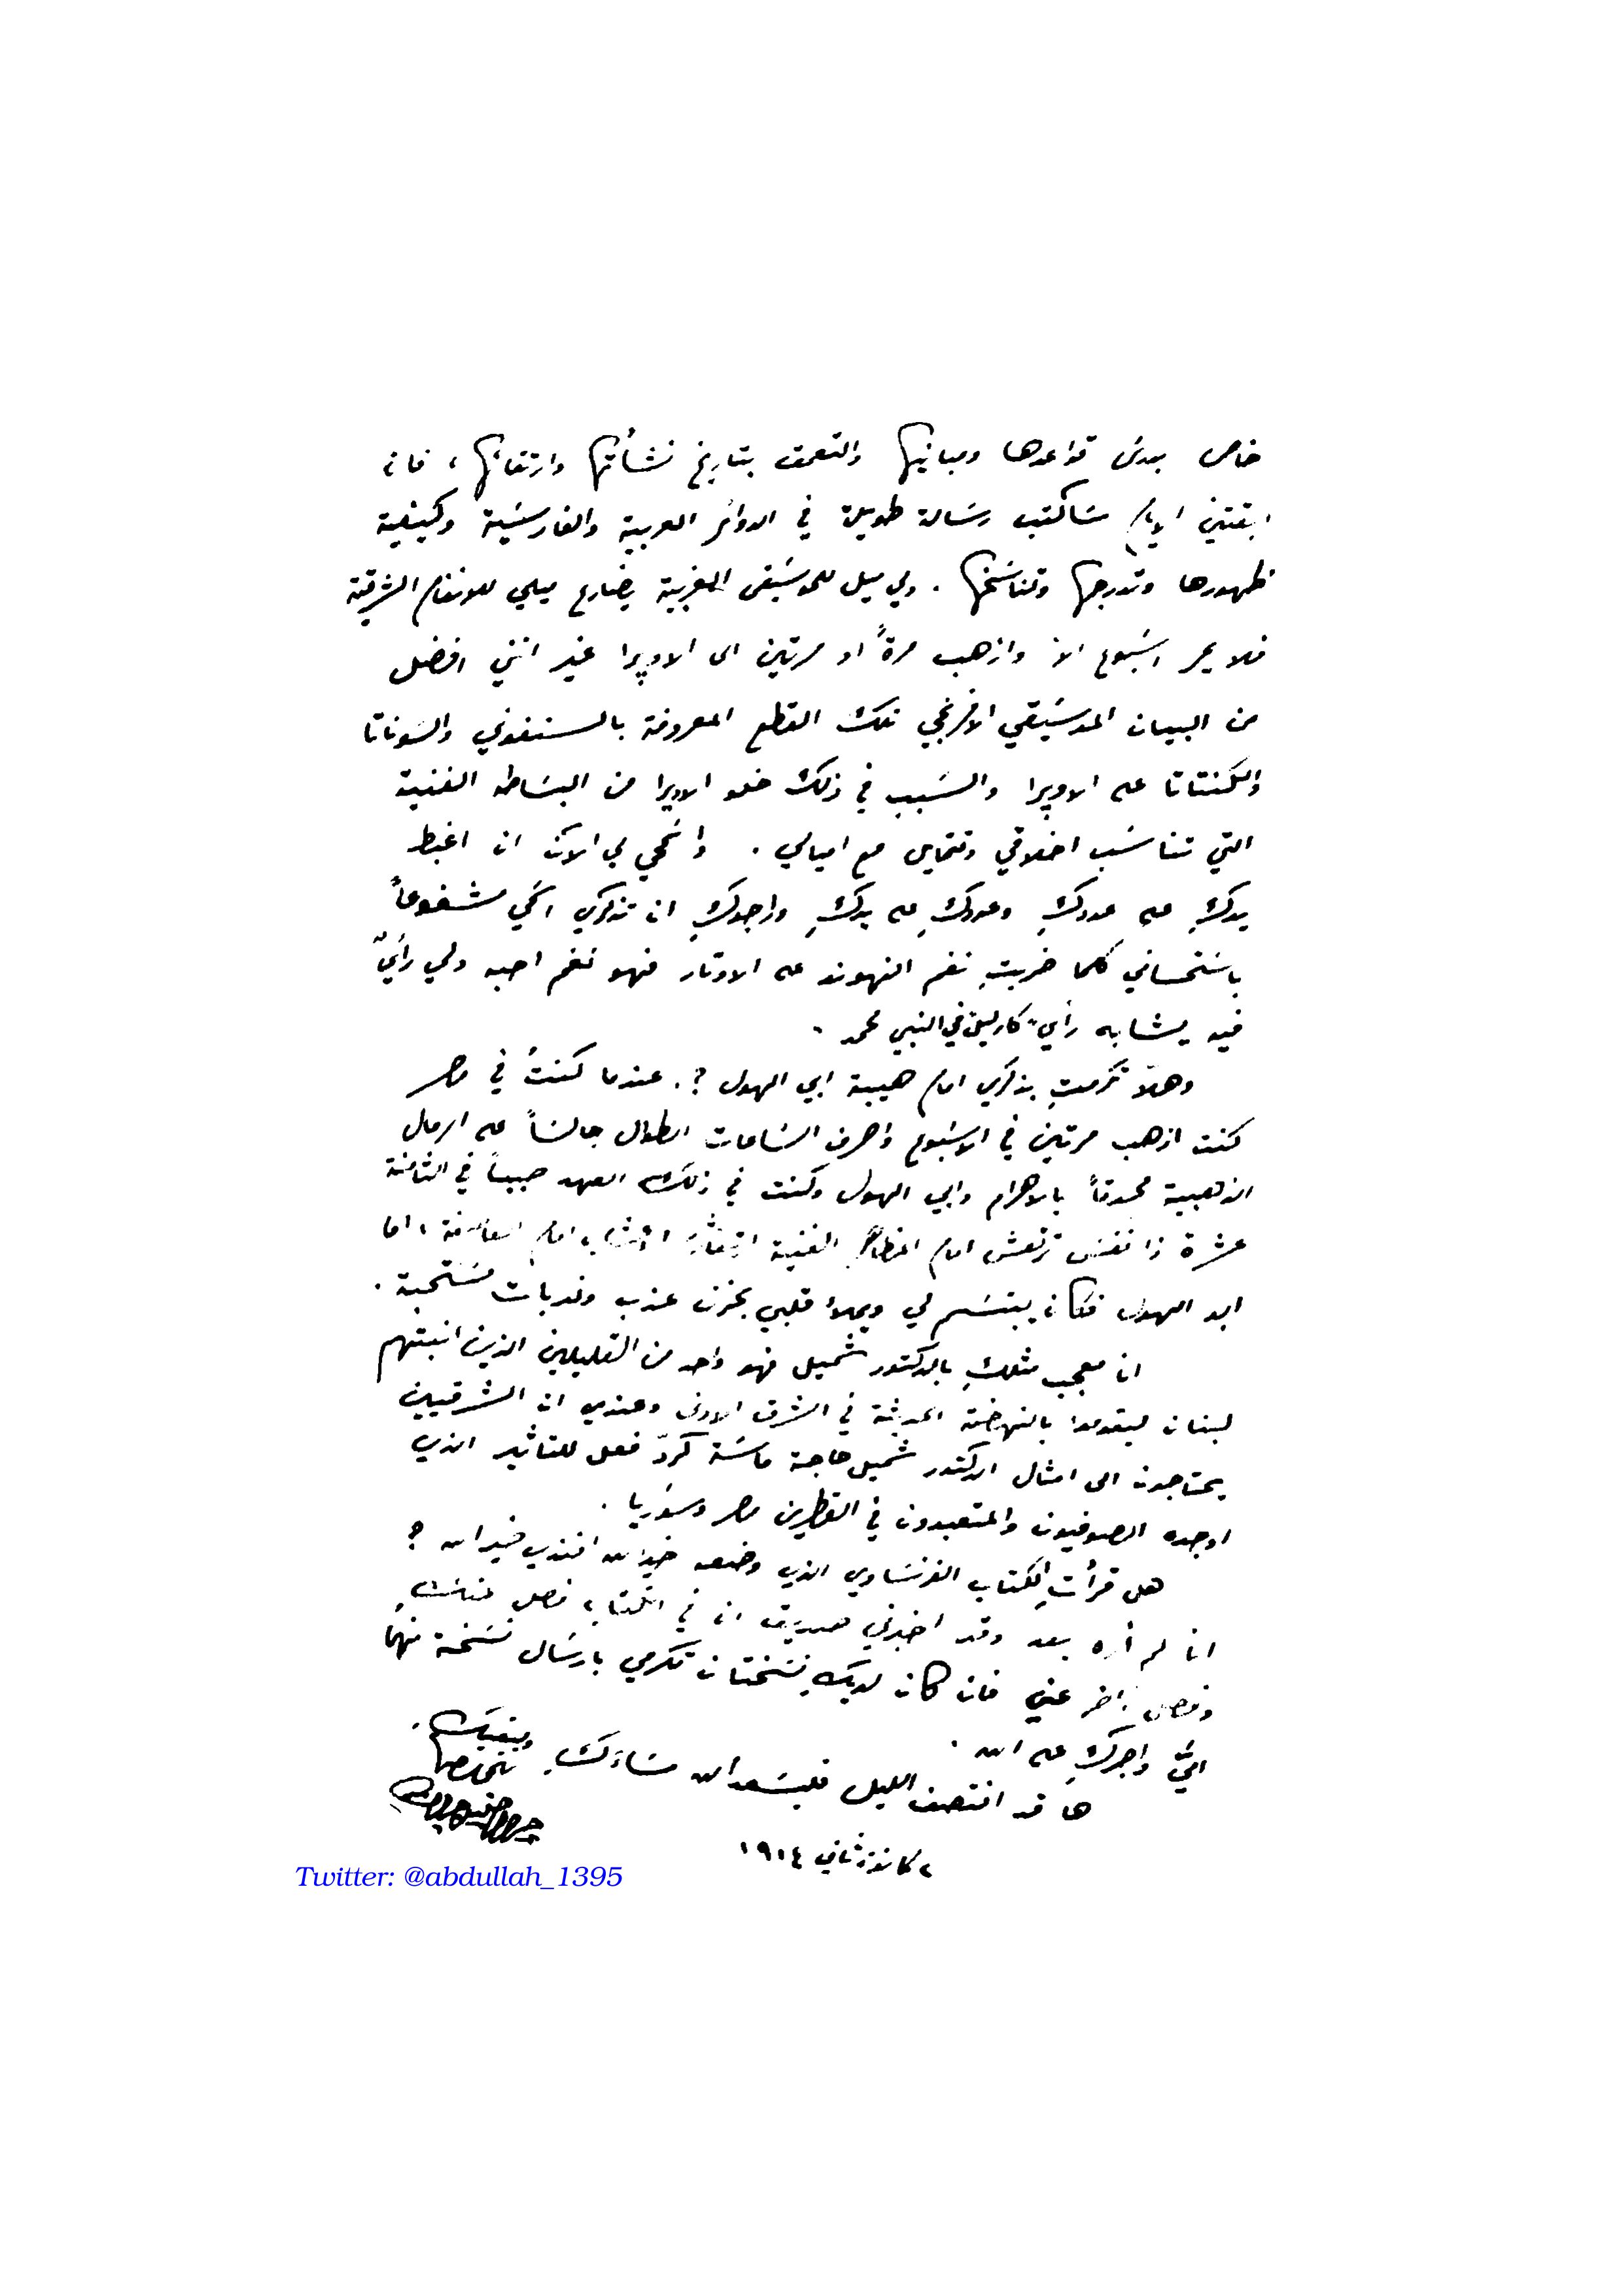 خاص بدرس قواعدها ومبانيها والتعمق بتاريخ نشأتها وارتقائها، فان
ابقتني الايام سَاكتب رسَالة طويلة في الدوائر العربية والفارسَية وكيفية
ظهورها وتدرجها وتناسَخها . ولي ميل للموسَيقى الغربية يضارع ميلي للانغام الشرقية
فلا يمر اسَبوع الا واذهب مرةً او مرتين الى الاوپرا غير انني افضل
من البيان الموسَيقي الافرنجي تلك القطع المعروفة بالسنفوني والسَوناتا
والكنتاتا على الاوپرا والسَبب في ذلك خلو الاوپرا من البسَاطه الفنية
التي تناسَب اخلاقي وتتمايل مع اميالي . واسَمحي لي الآن ان اغبط
يدكِ على عودكِ وعودكِ على يدكِ وارجوكِ ان تذكري اسَمي مشفوعاً
باسَتحساني كلما ضربتِ نغم النهوند على الاوتار فهو نغم احبه ولي رأيٌ
فيه يشابه رأي كارليل في النبي محمد .
وهلّا تكرمتِ بذكري امام هيبة ابي الهول ؟. عندما كنتُ في مصر
كنت اذهب مرتين في الاسَبوع واصرف السَاعات الطوال جالسَاً على الرمال
الذهبية محدقاً بالاهرام وابي الهول وكنت في ذلك العهد صبياً في الثامنة
عشرة ذا نفس ترتعش امام المظاهر الفنية ارتعاش الاعشاب امام العاصفة ، اما
ابو الهول فكان يبتسَم لي ويملأ قلبي بحزن عذب وندبات مسَتحبة .
انا معجب مثلكِ بالدكتور شميل فهو واحد من القليلين الذين انبتهم
لبنان ليقوموا بالنهضة الحديثة في الشرق الادنى وعندي ان الشرقيين
يحتاجون الى امثال الدكتور شميل حاجة ماسَة كردّ فعل للتاثير الذي
اوجده الصوفيون والمتعبدون في القطرين مصر وسَوريا .
هل قرأتِ الكتاب الفرنسَاوي الذي وضعه خيرالله افندي خيرالله ؟
انا لم أره بعد وقد اخبرني صديق ان في الكتاب فصل عنكِ
وفصل آخر عني فان كان لديكِ نسَختان تكرمي بارسَال نسَخة منهما
اليَّ واجركِ على الله .
ها قد انتصف الليل فليسَعد الله مسَاءكِ ويبقيكِ .
للمخلص
جبران خليل جبران
٢ كانون ثاني ١٩١٤
Twitter: @abdullah_1395